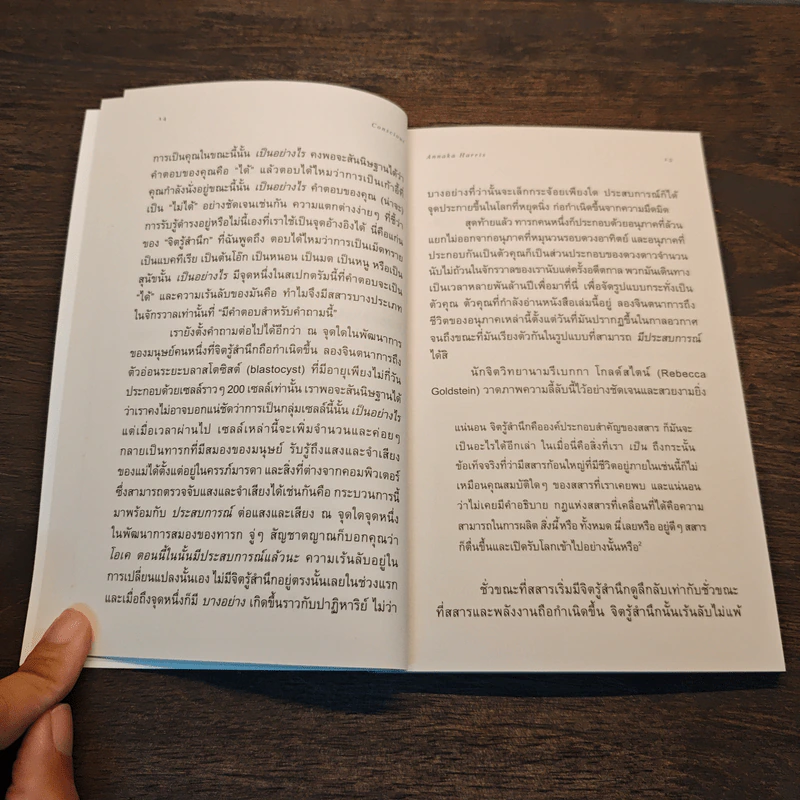 ๑๔
Conscious
การเป็นคุณในขณะนี้นั้น เป็นอย่างไร คงพอจะสันนิษฐานได้ว่า
คำตอบของคุณคือ "ได้" แล้วตอบได้ไหมว่าการเป็นเก้าอี้ที่
คุณกำลังนั่งอยู่ขณะนี้นั้น เป็นอย่างไร คำตอบของคุณ (น่าจะ)
เป็น "ไม่ได้" อย่างชัดเจนเช่นกัน ความแตกต่างง่ายๆ ที่ชี้ว่า
การรับรู้ดำรงอยู่หรือไม่นี้เองที่เราใช้เป็นจุดอ้างอิงได้ นี่คือแก่น
ของ "จิตรู้สำนึก" ที่ฉันพูดถึง ตอบได้ไหมว่าการเป็นเม็ดทราย
เป็นแบคทีเรีย เป็นต้นโอ๊ก เป็นหนอน เป็นมด เป็นหนู หรือเป็น
สุนัขนั้น เป็นอย่างไร มีจุดหนึ่งในสเปกตรัมนี้ที่คำตอบจะเป็น
"ได้" และความเร้นลับของมันคือ ทำไมจึงมีสสารบางประเภท
ในจักรวาลเท่านั้นที่ "มีคำตอบสำหรับคำถามนี้"
เรายังตั้งคำถามต่อไปได้อีกว่า ณ จุดใดในพัฒนาการ
ของมนุษย์คนหนึ่งที่จิตรู้สำนึกถือกำเนิดขึ้น ลองจินตนาการถึง
ตัวอ่อนระยะบลาสโตซิสต์ (blastocyst) ที่มีอายุเพียงไม่กี่วัน
ประกอบด้วยเซลล์ราวๆ 200 เซลล์เท่านั้น เราพอจะสันนิษฐานได้
ว่าเราคงไม่อาจบอกแน่ชัดว่าการเป็นกลุ่มเซลล์นี้นั้น เป็นอย่างไร
แต่เมื่อเวลาผ่านไป เซลล์เหล่านี้จะเพิ่มจำนวนและค่อยๆ
กลายเป็นทารกที่มีสมองของมนุษย์ รับรู้ถึงแสงและจำเสียง
ของแม่ได้ตั้งแต่อยู่ในครรภ์มารดา และสิ่งที่ต่างจากคอมพิวเตอร์
ซึ่งสามารถตรวจจับแสงและจำเสียงได้เช่นกันคือ กระบวนการนี้
มาพร้อมกับ ประสบการณ์ ต่อแสงและเสียง ณ จุดใดจุดหนึ่ง
ในพัฒนาการสมองของทารก จู่ๆ สัญชาตญาณก็บอกคุณว่า
โอเค ตอนนี้ในนั้นมีประสบการณ์แล้วนะ ความเร้นลับอยู่ใน
การเปลี่ยนแปลงนั้นเอง ไม่มีจิตรู้สำนึกอยู่ตรงนั้นเลยในช่วงแรก
และเมื่อถึงจุดหนึ่งก็มี บางอย่าง เกิดขึ้นราวกับปาฏิหาริย์ ไม่ว่า
Annaka Harris
๑๕
บางอย่างที่ว่านั้นจะเล็กกระจ้อยเพียงใด ประสบการณ์ก็ได้
จุดประกายขึ้นในโลกที่หยุดนิ่ง ก่อกำเนิดขึ้นจากความมืดมิด
สุดท้ายแล้ว ทารกคนหนึ่งก็ประกอบด้วยอนุภาคที่ล้วน
แยกไม่ออกจากอนุภาคที่หมุนวนรอบดวงอาทิตย์ และอนุภาคที่
ประกอบกันเป็นตัวคุณก็เป็นส่วนประกอบของดวงดาวจำนวน
นับไม่ถ้วนในจักรวาลของเรานับแต่ครั้งอดีตกาล พวกมันเดินทาง
เป็นเวลาหลายพันล้านปีเพื่อมาที่นี่ เพื่อจัดรูปแบบกระทั่งเป็น
ตัวคุณ ตัวคุณที่กำลังอ่านหนังสือเล่มนี้อยู่ ลองจินตนาการถึง
ชีวิตของอนุภาคเหล่านี้ตั้งแต่วันที่มันปรากฏขึ้นในกาลอวกาศ
จนถึงขณะที่มันเรียงตัวกันในรูปแบบที่สามารถ มีประสบการณ์
ได้สิ
นักจิตวิทยานามรีเบกกา โกลด์สไตน์ (Rebecca
Goldstein) วาดภาพความลี้ลับนี้ไว้อย่างชัดเจนและสวยงามยิ่ง
แน่นอน จิตรู้สำนึกคือองค์ประกอบสำคัญของสสาร ก็มันจะ
เป็นอะไรได้อีกเล่า ในเมื่อนี่คือสิ่งที่เรา เป็น ถึงกระนั้น
ข้อเท็จจริงที่ว่ามีสสารก้อนใหญ่ที่มีชีวิตอยู่ภายในเช่นนี้ก็ไม่
เหมือนคุณสมบัติใดๆ ของสสารที่เราเคยพบ และแน่นอน
ว่าไม่เคยมีคำอธิบาย กฎแห่งสสารที่เคลื่อนที่ได้คือความ
สามารถในการผลิต สิ่งนี้หรือ ทั้งหมด นี่เลยหรือ อยู่ดีๆ สสาร
ก็ตื่นขึ้นและเปิดรับโลกเข้าไปอย่างนั้นหรือ²
ชั่วขณะที่สสารเริ่มมีจิตรู้สำนึกดูลึกลับเท่ากับชั่วขณะ
ที่สสารและพลังงานถือกำเนิดขึ้น จิตรู้สำนึกนั้นเร้นลับไม่แพ้